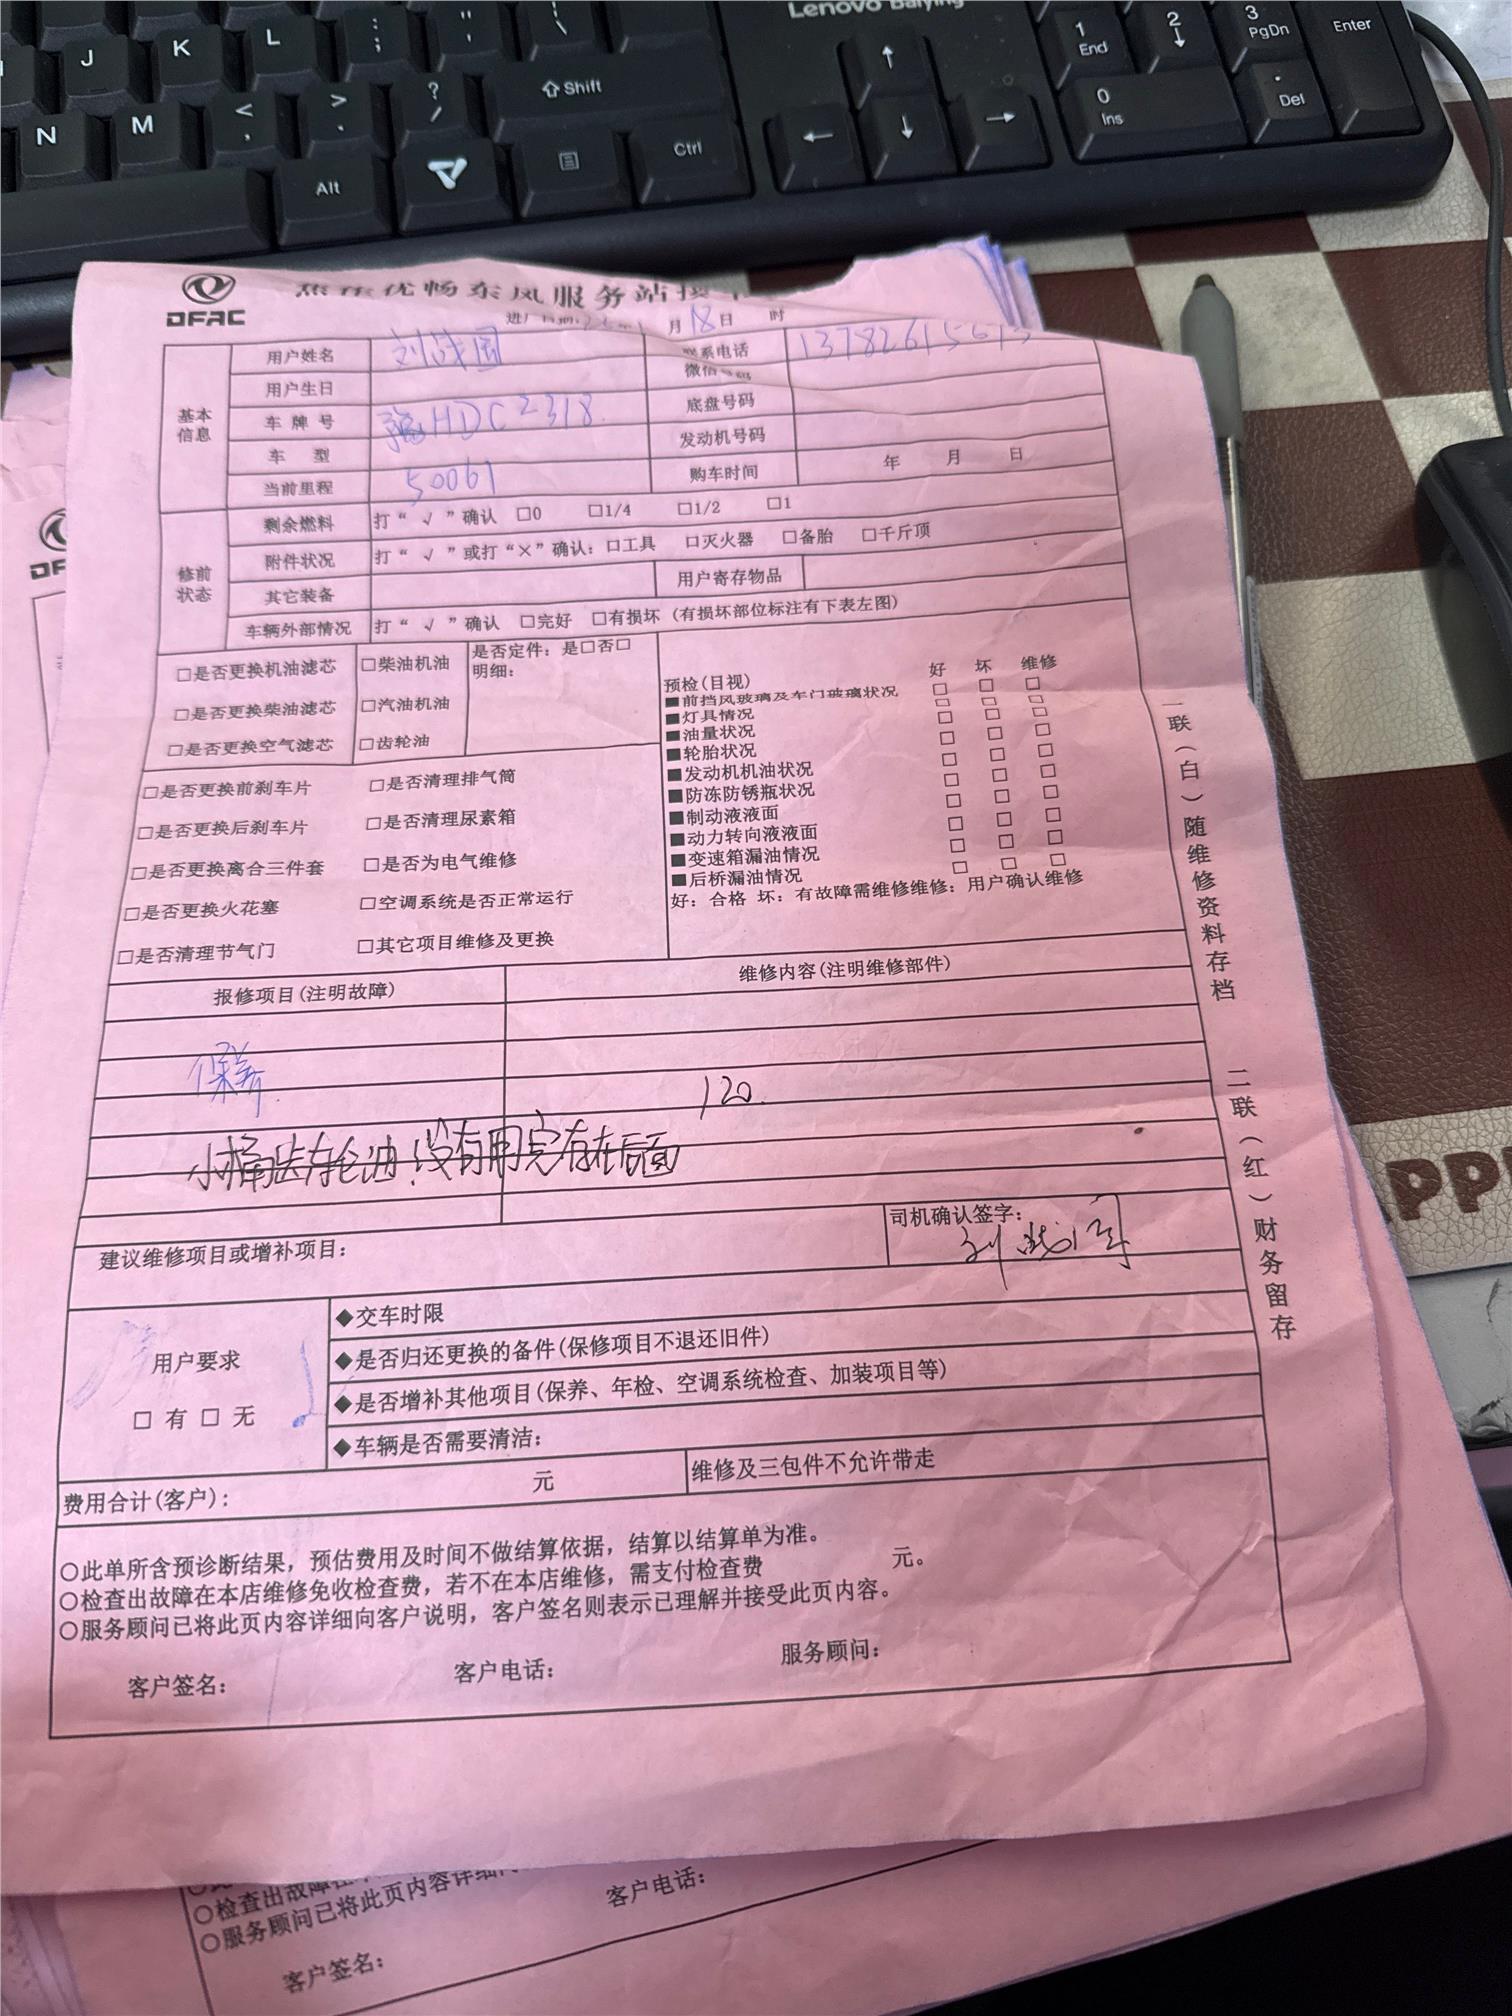 Lenovo Baiying
J
K
L
;
"
\
N
M
<
,
>
.
?
/
Shift
Alt
Ctrl
1
End
2
3
PgDn
Enter
0
Ins
.
Del
DFAC
优畅东风服务站接
月18日 时
基本信息
用户姓名 刘战国 联系电话
用户生日
车牌号 豫HDC2318 底盘号码
车型 发动机号码
当前里程 50061 购车时间 年 月 日
修前状态
剩余燃料 打“√”确认 □0 □1/4 □1/2 □1
附件状况 打“√”或打“×”确认：□工具 □灭火器 □备胎 □千斤顶
其它装备 用户寄存物品
车辆外部情况 打“√”确认 □完好 □有损坏 (有损坏部位标注有下表左图)
□是否更换机油滤芯 □柴油机油 是否定件：是□否□
明细：
□是否更换柴油滤芯 □汽油机油
□是否更换空气滤芯 □齿轮油
□是否更换前刹车片 □是否清理排气筒
□是否更换后刹车片 □是否清理尿素箱
□是否更换离合三件套 □是否为电气维修
□是否更换火花塞 □空调系统是否正常运行
□是否清理节气门 □其它项目维修及更换
预检(目视) 好 坏 维修
■前挡风玻璃及车门玻璃状况 □ □ □
■灯具情况 □ □ □
■油量状况 □ □ □
■轮胎状况 □ □ □
■发动机机油状况 □ □ □
■防冻防锈瓶状况 □ □ □
■制动液液面 □ □ □
■动力转向液液面 □ □ □
■变速箱漏油情况 □ □ □
■后桥漏油情况 □ □ □
好：合格 坏：有故障需维修维修：用户确认维修
报修项目(注明故障) 维修内容(注明维修部件)
保养
120.
小桶齿轮油.没有用完存在后面
建议维修项目或增补项目：
司机确认签字：
用户要求
□ 有 □ 无
◆交车时限
◆是否归还更换的备件(保修项目不退还旧件)
◆是否增补其他项目(保养、年检、空调系统检查、加装项目等)
◆车辆是否需要清洁：
费用合计(客户)： 元 维修及三包件不允许带走
○此单所含预诊断结果，预估费用及时间不做结算依据，结算以结算单为准。
○检查出故障在本店维修免收检查费，若不在本店维修，需支付检查费 元。
○服务顾问已将此页内容详细向客户说明，客户签名则表示已理解并接受此页内容。
客户签名： 客户电话： 服务顾问：
一联（白）随维修资料存档
二联（红）财务留存
○检查出故障在
○服务顾问已将此页内容详细
客户签名： 客户电话：